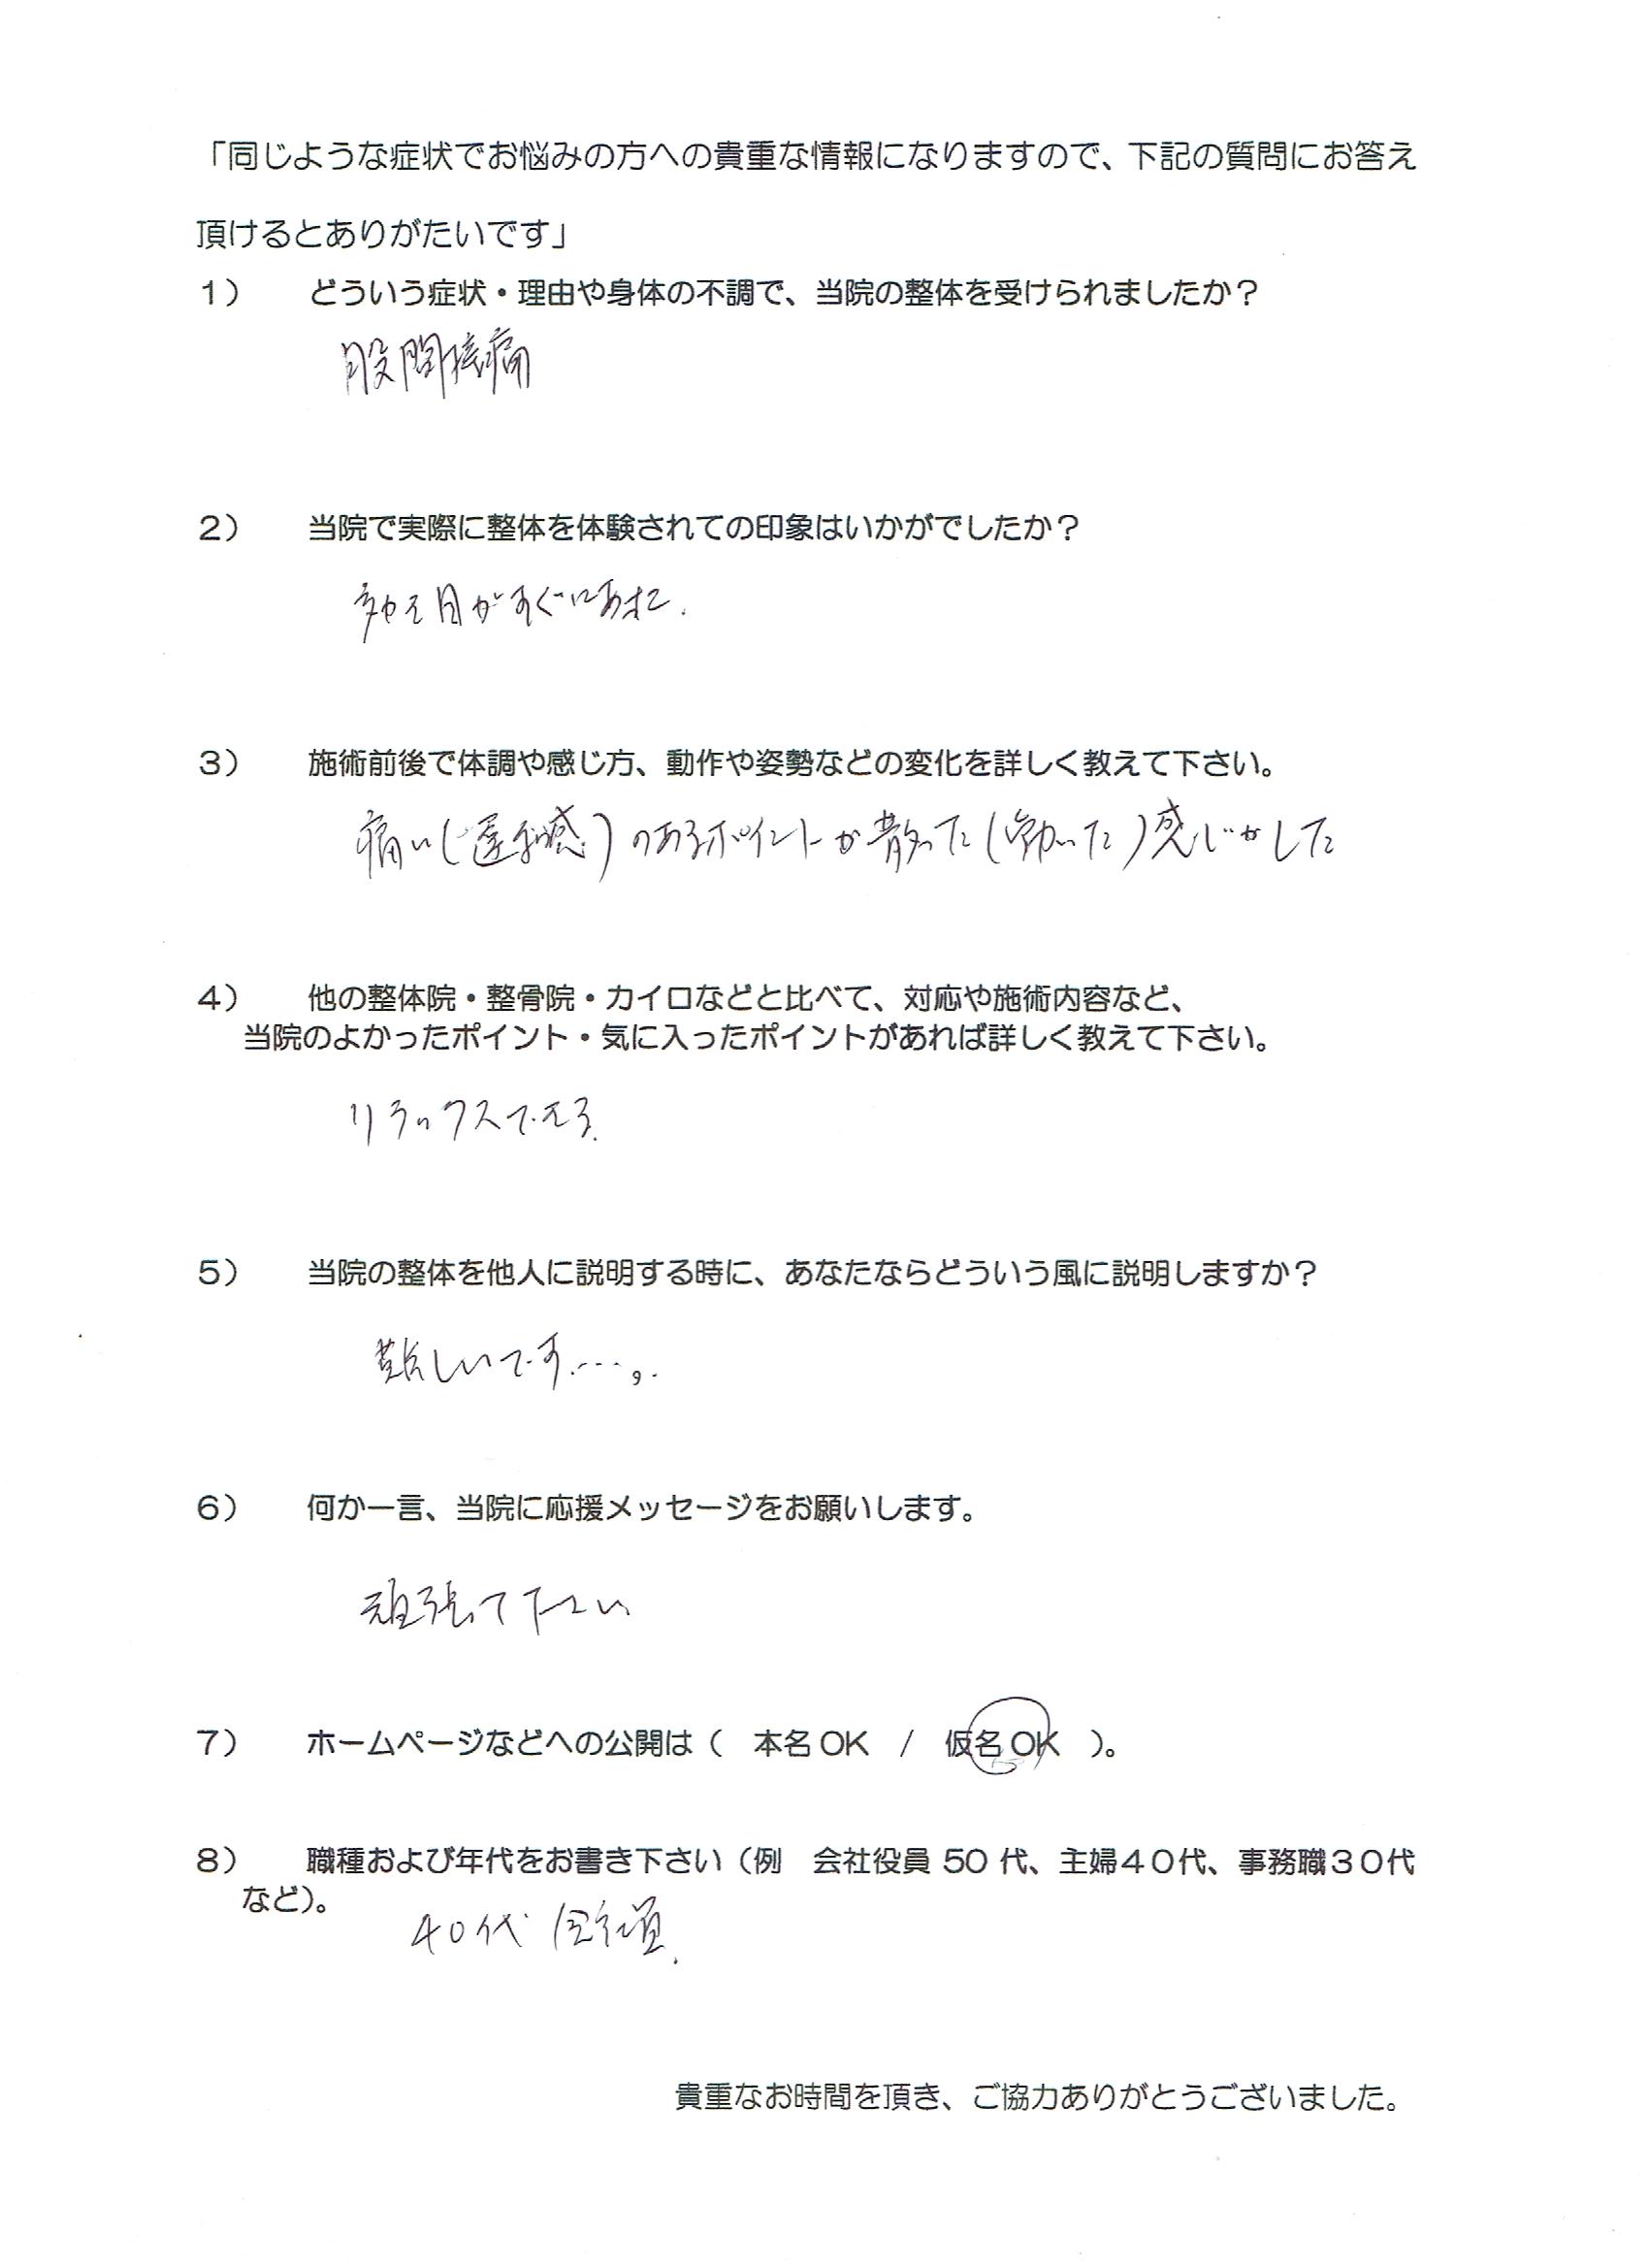 「同じような症状でお悩みの方への貴重な情報になりますので、下記の質問にお答え
頂けるとありがたいです」
1） どういう症状・理由や身体の不調で、当院の整体を受けられましたか？
股間接痛
2） 当院で実際に整体を体験されての印象はいかがでしたか？
効き目がすぐにあった.
3） 施術前後で体調や感じ方、動作や姿勢などの変化を詳しく教えて下さい。
痛い(違和感)のあるポイントが散った(動いた)感じがした
4） 他の整体院・整骨院・カイロなどと比べて、対応や施術内容など、
当院のよかったポイント・気に入ったポイントがあれば詳しく教えて下さい。
リラックスできる.
5） 当院の整体を他人に説明する時に、あなたならどういう風に説明しますか？
難しいです…。
6） 何か一言、当院に応援メッセージをお願いします。
頑張って下さい
7） ホームページなどへの公開は（ 本名OK / 仮名OK ）。
8） 職種および年代をお書き下さい（例 会社役員 50 代、主婦４０代、事務職３０代
など）。
40代 会社員.
貴重なお時間を頂き、ご協力ありがとうございました。